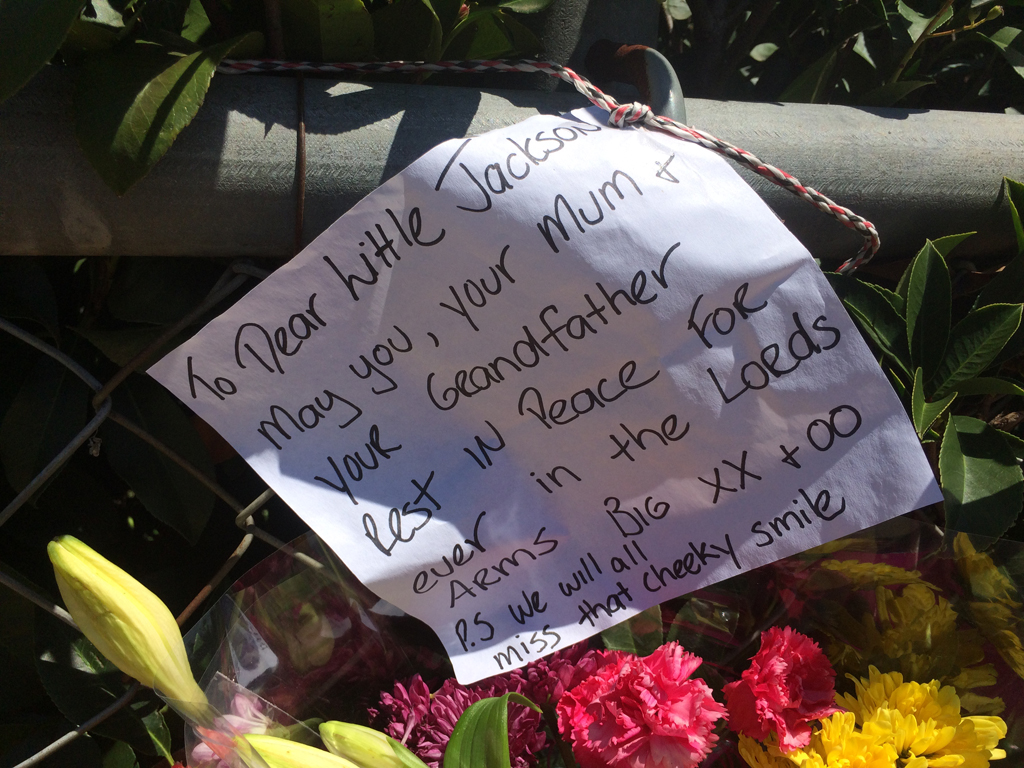 To Dear Little Jackson
May you, your Mum +
your Grandfather
Rest IN Peace FOR
ever in the Lords
Arms Big XX + OO
P.S we will all
miss that cheeky smile